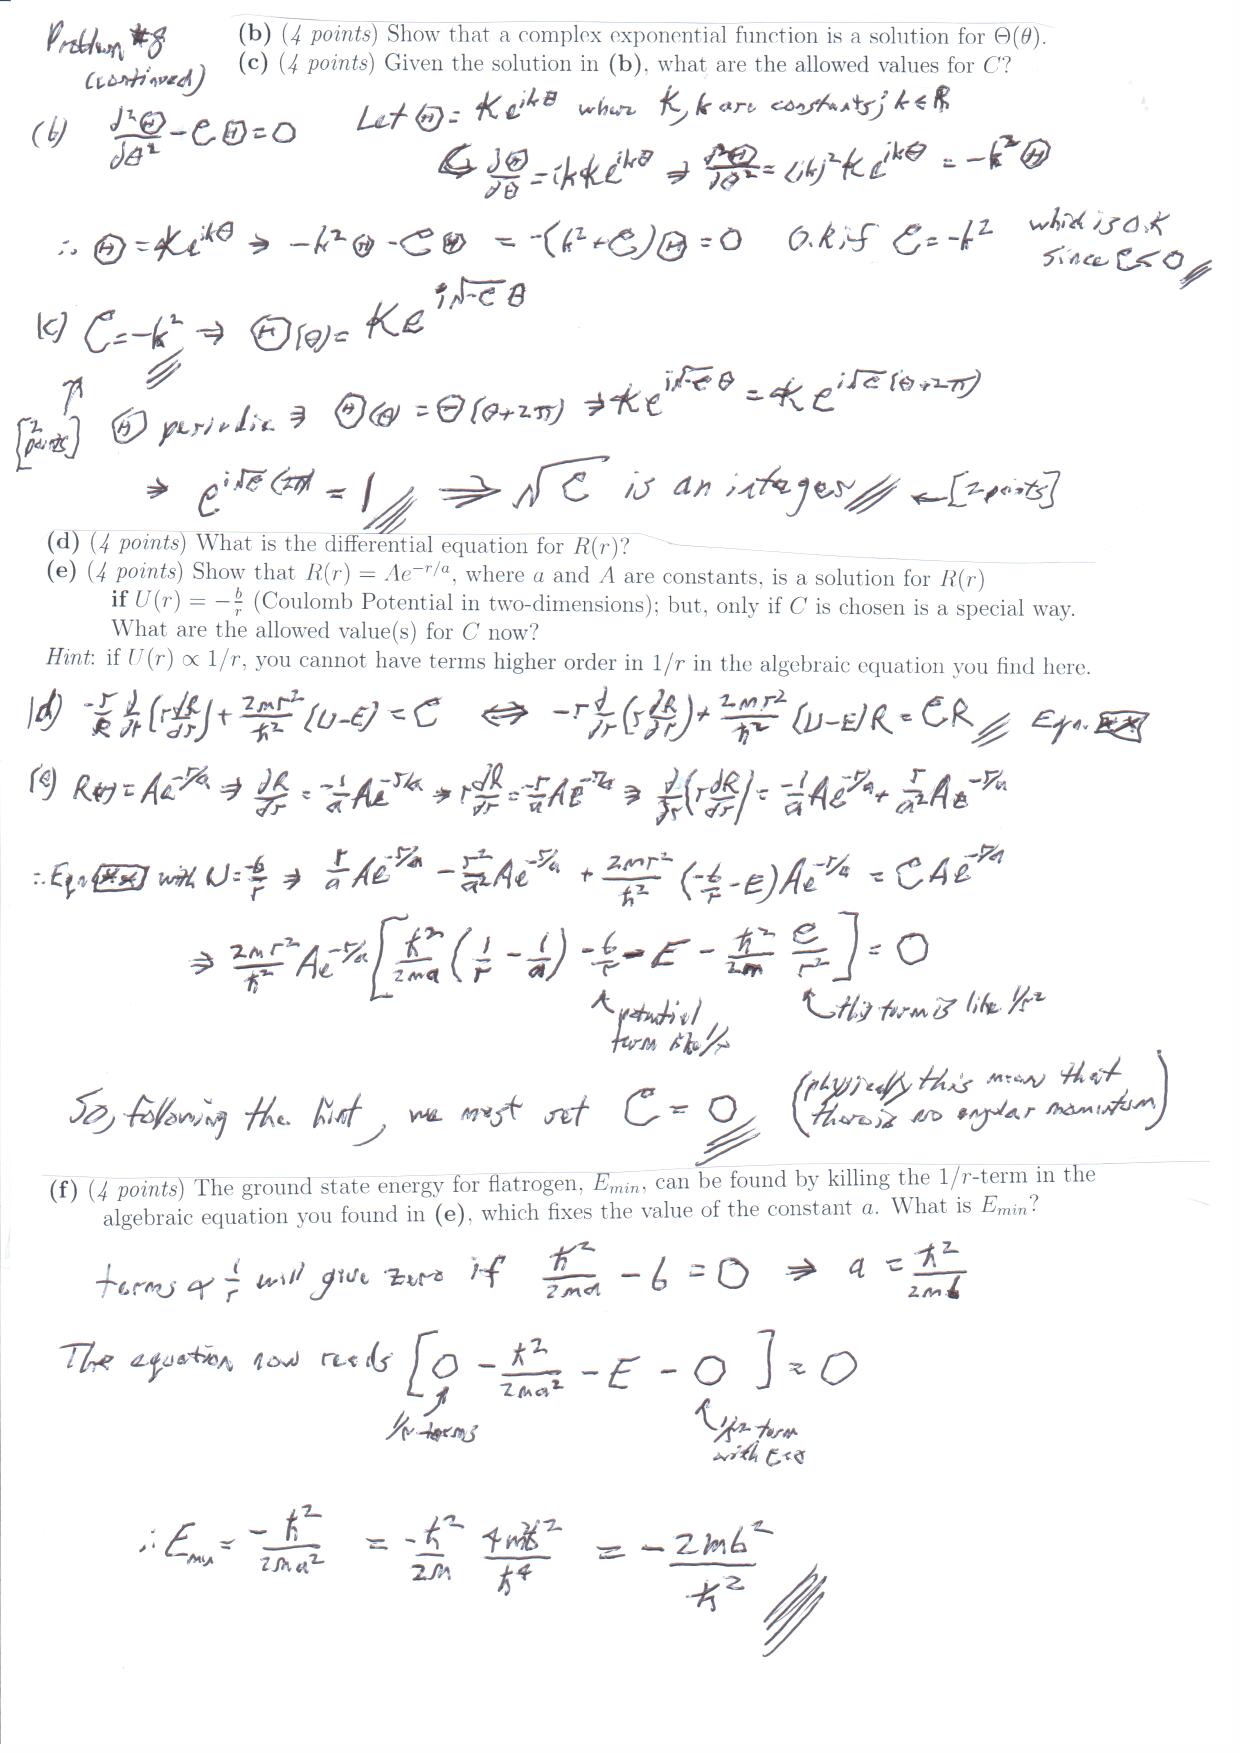 Problem #8
(continued)
(b) (4 points) Show that a complex exponential function is a solution for Θ(θ).
(c) (4 points) Given the solution in (b), what are the allowed values for C?
(b) d²Θ/dθ² - CΘ = 0 Let Θ = Ke^{ikθ} where K, k are constants; k ∈ ℝ
↳ dΘ/dθ = ikKe^{ikθ} ⇒ d²Θ/dθ² = (ik)²Ke^{ikθ} = -k²Θ
∴ Θ = Ke^{ikθ} ⇒ -k²Θ - CΘ = -(k²+C)Θ = 0 O.K if C = -k² which is O.K
since C≤0
(c) C = -k² ⇒ Θ(θ) = Ke^{i√-C θ}
↑
[2 points] Θ periodic ⇒ Θ(θ) = Θ(θ+2π) ⇒ Ke^{i√-C θ} = Ke^{i√C (θ+2π)}
⇒ e^{i√C (2π)} = 1 ⇒ √C is an integer ← [2 points]
(d) (4 points) What is the differential equation for R(r)?
(e) (4 points) Show that R(r) = Ae^{-r/a}, where a and A are constants, is a solution for R(r)
if U(r) = -b/r (Coulomb Potential in two-dimensions); but, only if C is chosen is a special way.
What are the allowed value(s) for C now?
Hint: if U(r) ∝ 1/r, you cannot have terms higher order in 1/r in the algebraic equation you find here.
(d) -r/R d/dr (r dR/dr) + 2mr²/ħ² (U-E) = C ⇔ -r d/dr (r dR/dr) + 2mr²/ħ² (U-E)R = CR Eqn. **
(e) R(r) = Ae^{-r/a} ⇒ dR/dr = -1/a Ae^{-r/a} ⇒ r dR/dr = -r/a Ae^{-r/a} ⇒ d/dr (r dR/dr) = -1/a Ae^{-r/a} + r/a² Ae^{-r/a}
∴ Eqn ** with U = -b/r ⇒ r/a Ae^{-r/a} - r²/a² Ae^{-r/a} + 2mr²/ħ² (-b/r - E) Ae^{-r/a} = CAe^{-r/a}
⇒ 2mr²/ħ² Ae^{-r/a} [ħ²/2ma (1/r - 1/a) - b/r - E - ħ²/2m C/r²] = 0
↑ potential ↑ this term is like 1/r²
term like 1/r
So, following the hint, we must set C = 0 (physically this mean that
there is no angular momentum)
(f) (4 points) The ground state energy for flatrogen, E_{min}, can be found by killing the 1/r-term in the
algebraic equation you found in (e), which fixes the value of the constant a. What is E_{min}?
terms ∝ 1/r will give zero if ħ²/2ma - b = 0 ⇒ a = ħ²/2mb
The equation now reads [0 - ħ²/2ma² - E - 0] = 0
1/r terms 1/r² term
with C=0
∴ E_{min} = -ħ²/2ma² = -ħ²/2m 4m²b²/ħ⁴ = -2mb²/ħ²